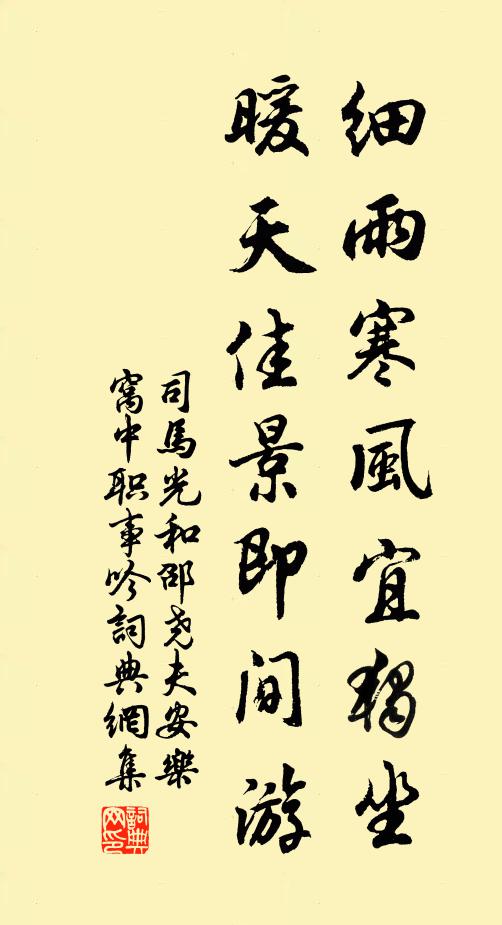 細雨寒風宜獨坐
暖天佳景即間游
司馬光和邵尧夫安樂
窩中职事吟詞典網集
詞典
网印